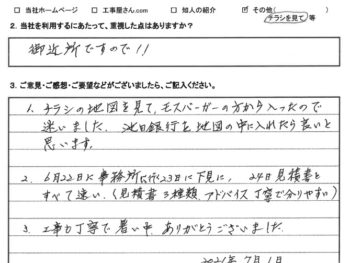 □ 当社ホームページ □ 工事屋さん.com □ 知人の紹介 ☑ その他(チラシを見て)等
2. 当社を利用するにあたって、重視した点はありますか?
御近所ですので!!
3. ご意見・ご感想・ご要望などがございましたら、ご記入ください。
1. チラシの地図を見て、モスバーガーの方から入ったので
迷いました。池田銀行を地図の中に入れたら良いと
思います。
2. 6月22日に事務所に行く23日に下見に、24日見積書と
すべて速い。(見積書3種類 アドバイス丁寧で分りやすい)
3. 工事も丁寧で暑い中、ありがとうございました。
年7月1日